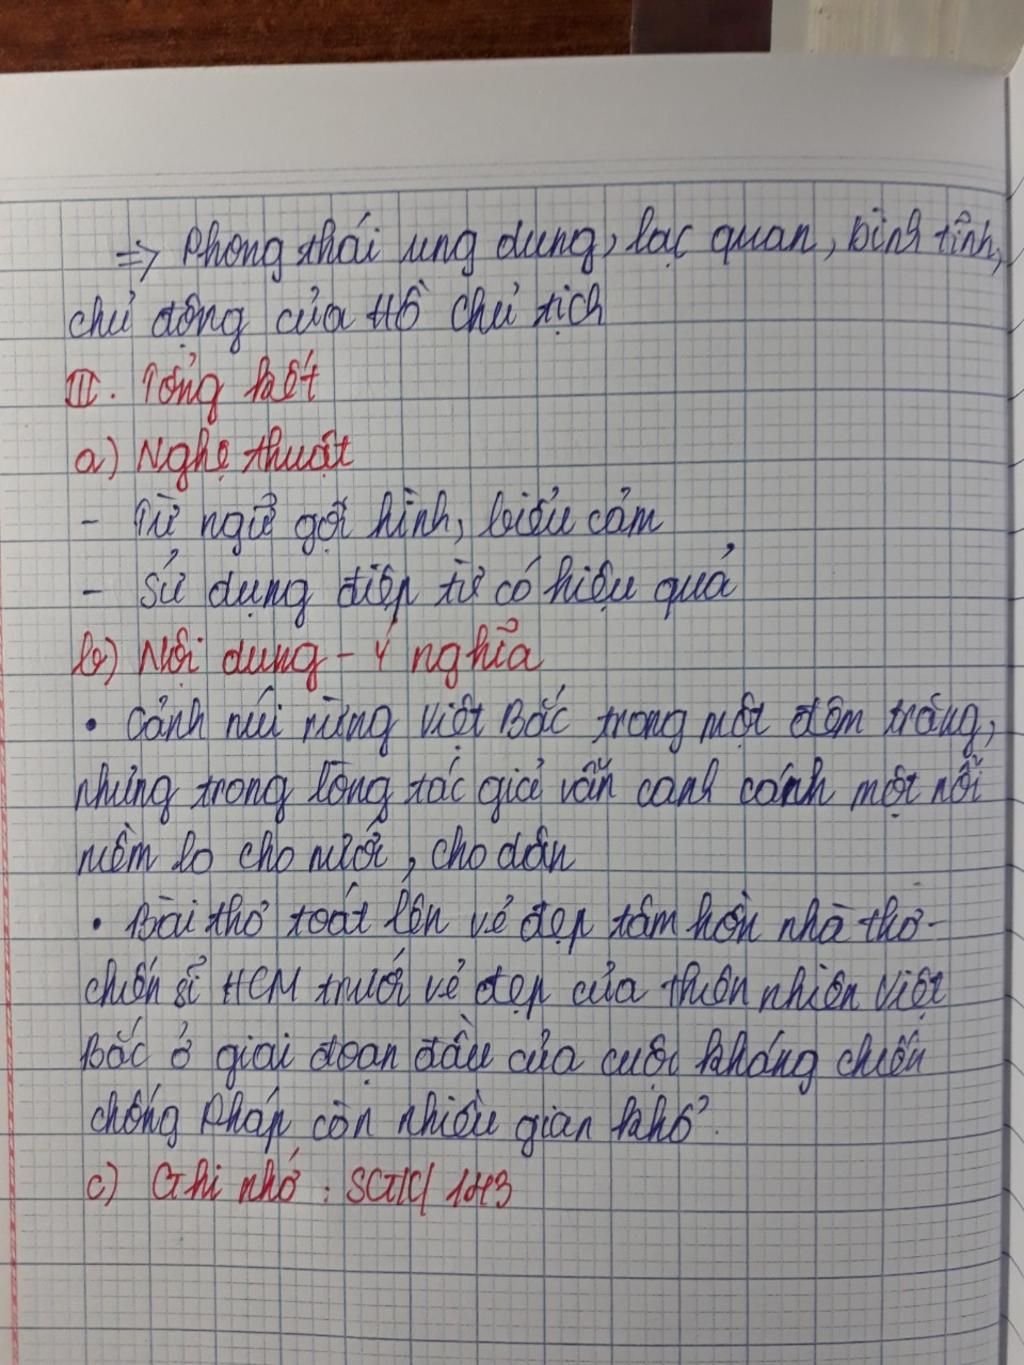 => Phong thái ung dung, lạc quan, bình tĩnh,
chủ động của Hồ Chủ tịch
III. Tổng kết
a) Nghệ thuật
- Từ ngữ gợi hình, biểu cảm
- Sử dụng điệp từ có hiệu quả
b) Nội dung - Ý nghĩa
• Cảnh núi rừng Việt Bắc trong một đêm trăng,
nhưng trong lòng tác giả vẫn canh cánh một nỗi
niềm lo cho nước, cho dân
• Bài thơ toát lên vẻ đẹp tâm hồn nhà thơ -
chiến sĩ HCM trước vẻ đẹp của thiên nhiên Việt
Bắc ở giai đoạn đầu của cuộc kháng chiến
chống Pháp còn nhiều gian khổ.
c) Ghi nhớ : SGK/ 143